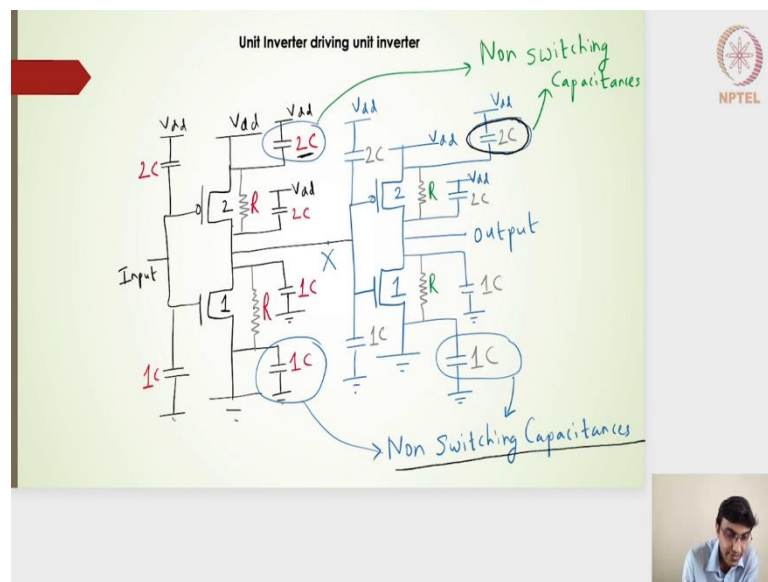 Unit Inverter driving unit inverter
Non switching
Capacitances
NPTEL
Vdd
Vdd
Vdd
2C
2C
2
R
Vdd
2C
Input
1
R
1C
1C
1C
X
Vdd
Vdd
Vdd
2C
2C
2
R
Vdd
2C
Output
1
R
1C
1C
1C
Non Switching Capacitances